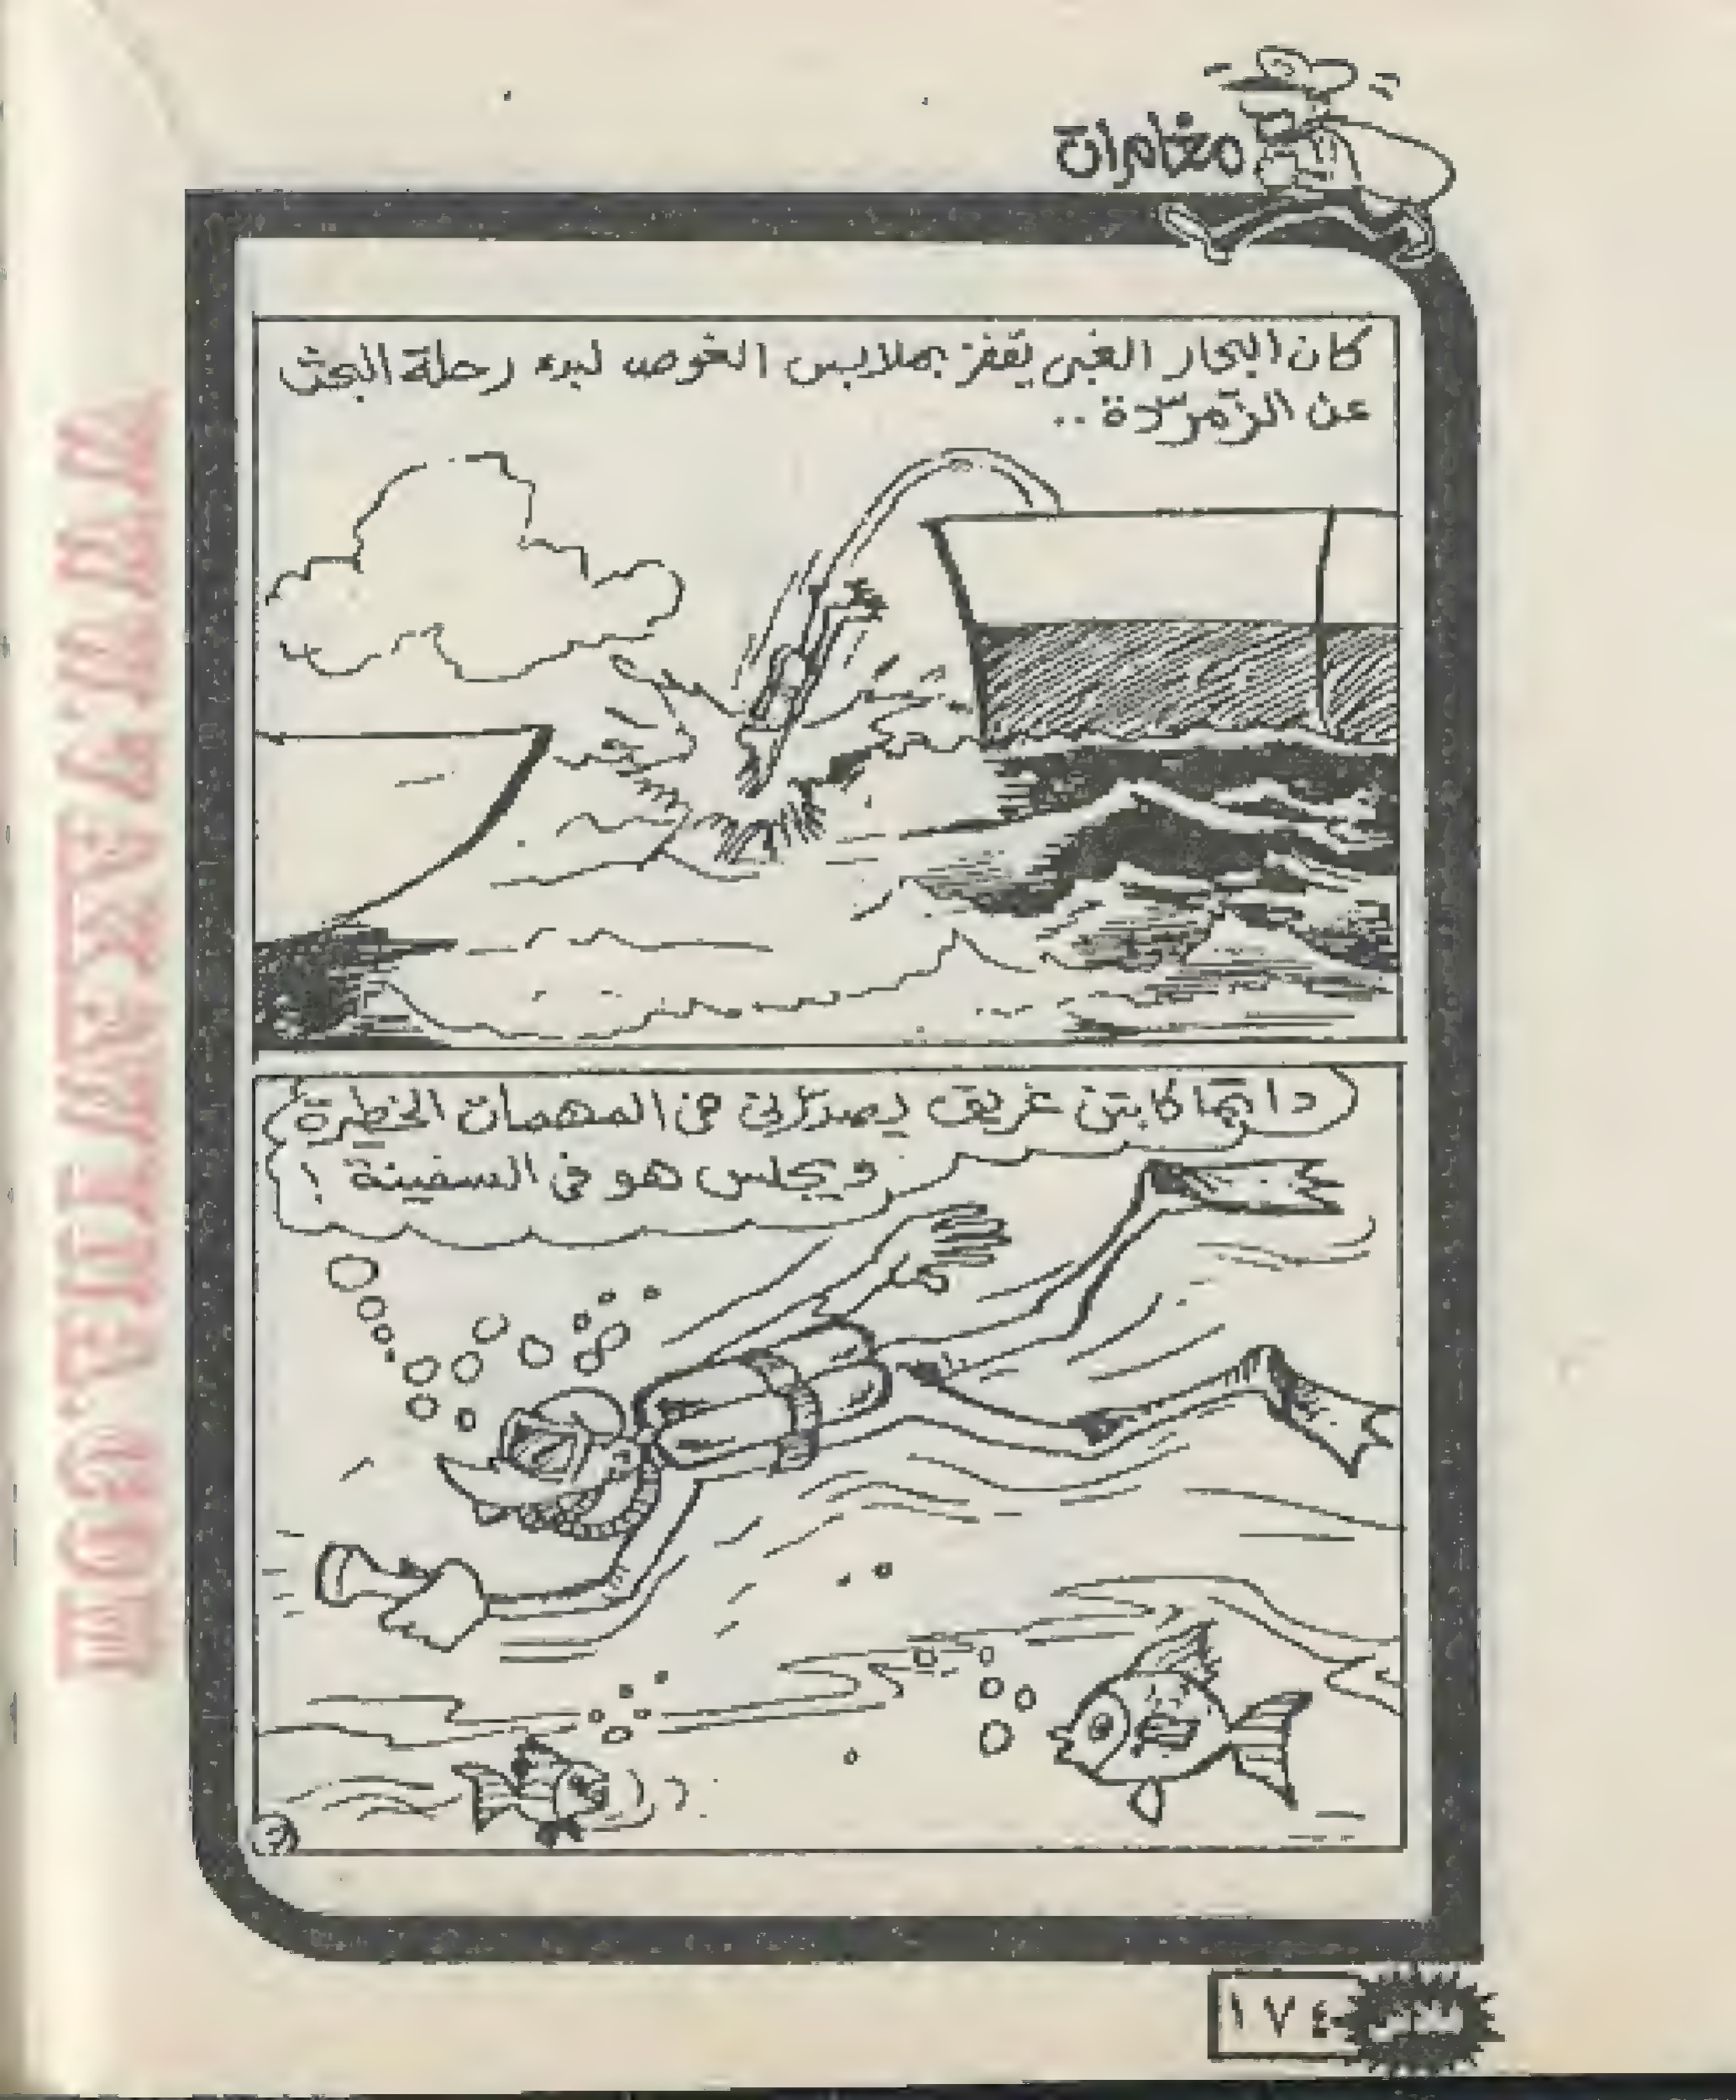 مغامرات
كان البحار الغبى يقفز بملابس الغوص لبدء رحلة البحث
عن الزّمرّدة ..
دائماً كابتن غريق يصدّرنى فى المهمات الخطيرة
ويجلس هو فى السفينة !
١٧٤
فلاش